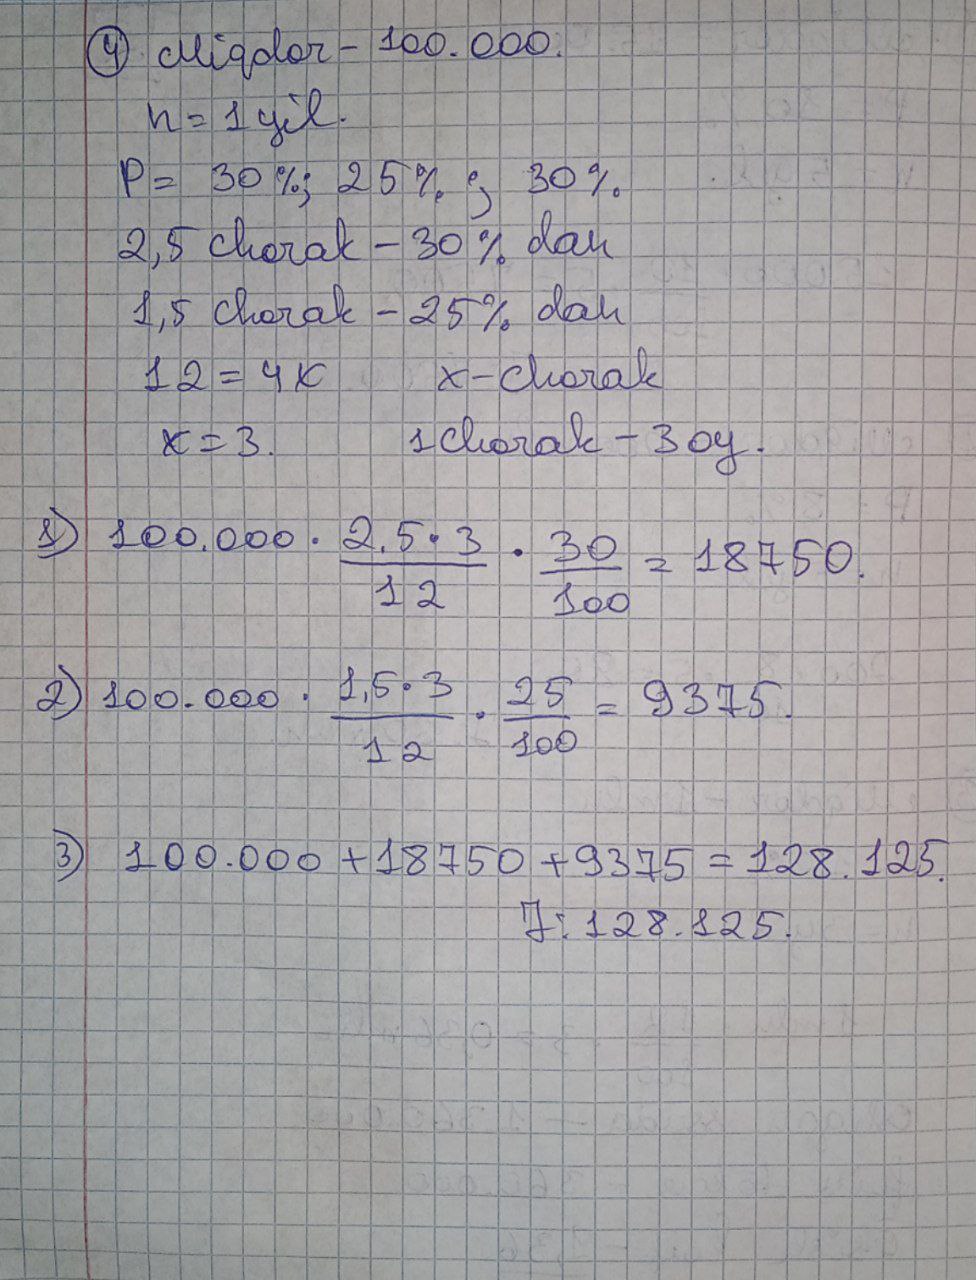 4. Miqdor - 100.000.
n = 1 yil.
P = 30%; 25%; 30%.
2,5 chorak - 30% dan
1,5 chorak - 25% dan
12 = 4x x - chorak
x = 3. 1 chorak - 3 oy.
1) 100.000 · 2,5·3/12 · 30/100 = 18750.
2) 100.000 · 1,5·3/12 · 25/100 = 9375.
3) 100.000 + 18750 + 9375 = 128.125.
J: 128.125.